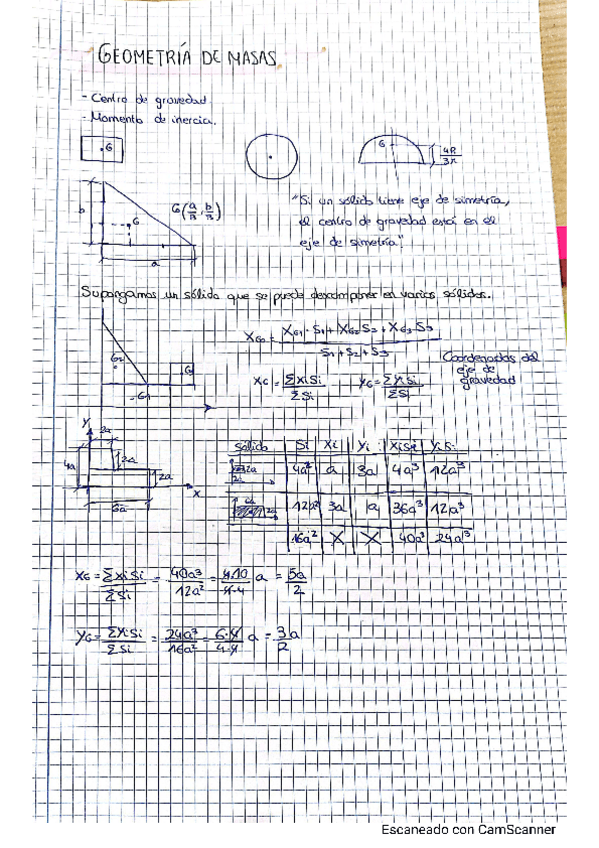 GEOMETRÍA DE MASAS
- Centro de gravedad.
- Momento de inercia.
G
G
4R
3π
b
G
a
G(a/3, b/3)
"Si un sólido tiene eje de simetría,
el centro de gravedad está en el
eje de simetría."
Supongamos un sólido que se puede descomponer en varios sólidos.
XG = XG1 · S1 + XG2 S2 + XG3 S3 / S1 + S2 + S3
G2
G1
G
XG = ΣxiSi / ΣSi YG = ΣyiSi / ΣSi
Coordenadas del
eje de
gravedad
Y
2a
4a
2a
2a
6a
X
Sólido Si Xi Yi XiSi YiSi
2a
2a
4a² a 3a 4a³ 12a³
6a
2a
12a² 3a a 36a³ 12a³
16a² X X 40a³ 24a³
XG = ΣxiSi / ΣSi = 40a³ / 12a² = 4·10 / 4·4 a = 5a / 2
YG = ΣyiSi / ΣSi = 24a³ / 16a² = 6·4 / 4·4 a = 3a / 2
Escaneado con CamScanner